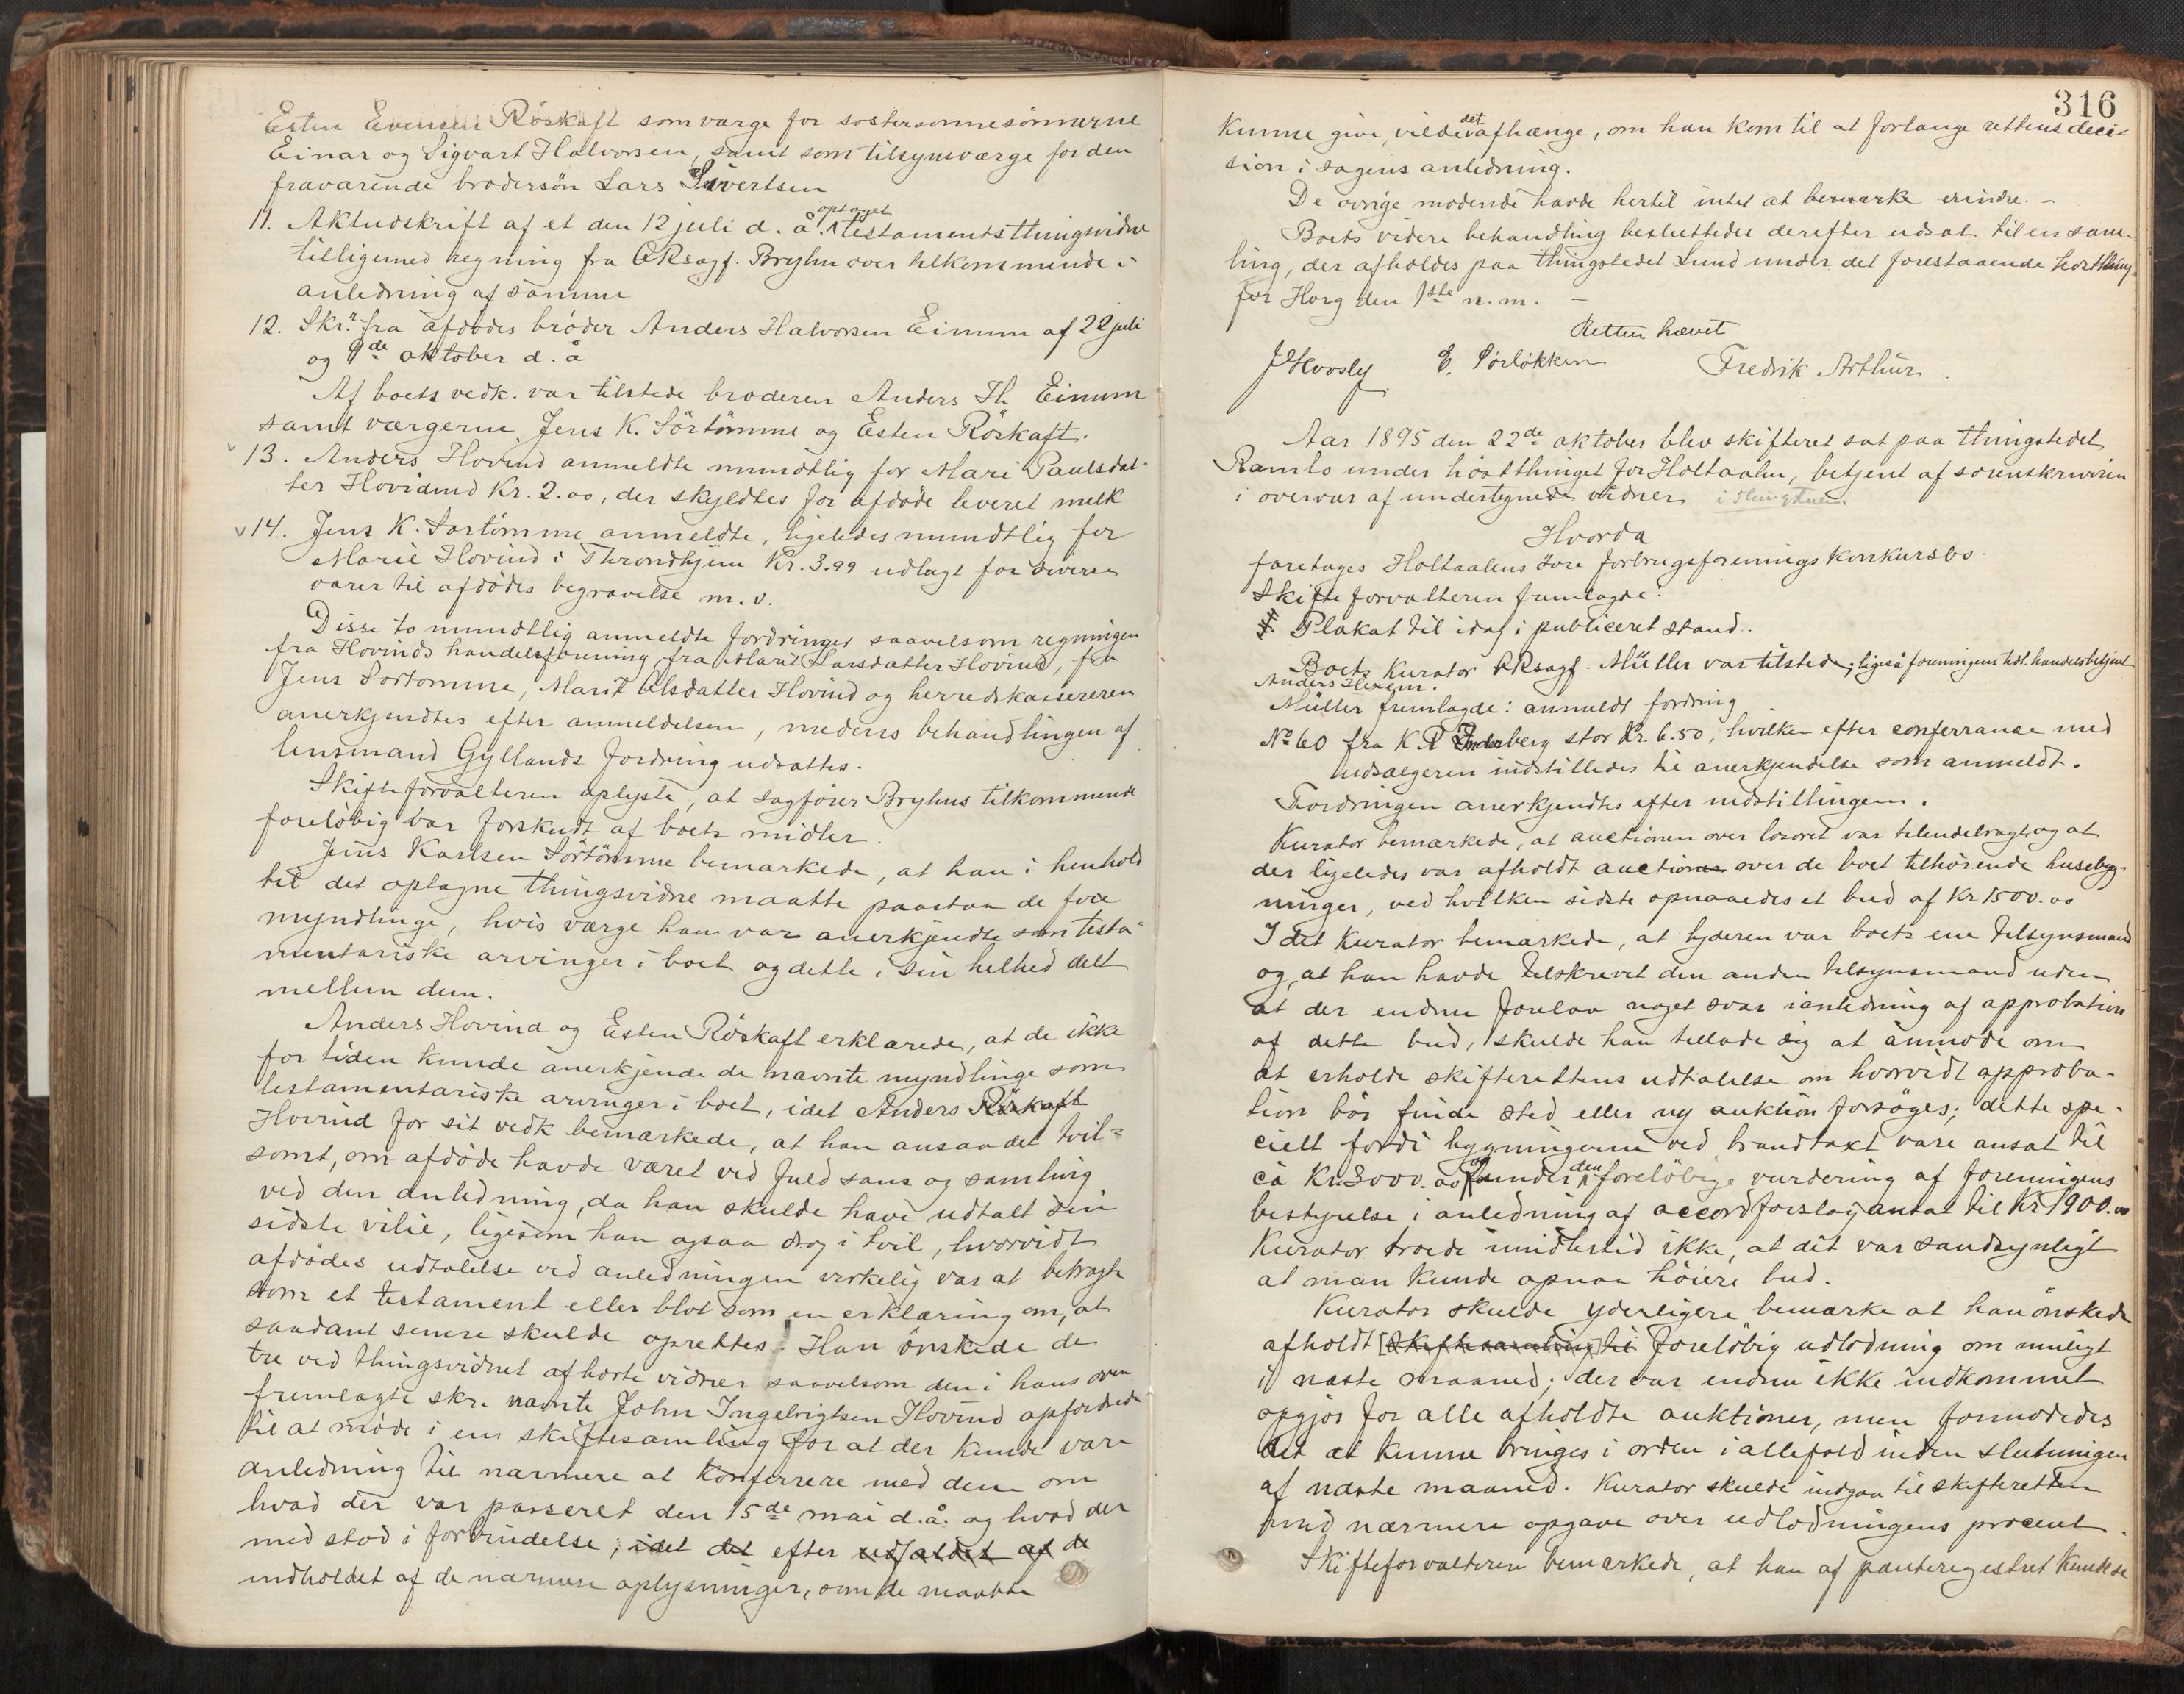 Esten Evensen Röskaft som værge for søstersønnesönnerne
Einar og Sigvart Halvorsen, samt som tilsynsværge for den
fraværende brodersön Lars Sivertsen
11. Aktudskrift af et den 12 juli d. å. optaget testamentsthingsvidne
tilligemed regning fra ORsagf. Bryhn over tilkommende i
anledning af samme
12. Skr. fra afdødes bróder Anders Halvorsen Eimum af 22 juli
og 9de oktober d. å
Af boets vedk. var tilstede broderen Anders H. Eimum
samt værgerne Jens K. Sörtömme og Esten Röskaft.
13. Anders Hovind anmeldte mundtlig for Mari Paulsdat-
ter Hovidmd Kr. 2.00, der skyldtes for afdöde leveret melk
14. Jens K. Sørtömme anmeldte, ligeledes mundtlig for
Marie Hovind i Throndhjem Kr. 3.99 udlagt for diverse
varer til afdödes begravelse m. v.
Disse to mundtlig anmeldte fordringer saavelsom regningen
fra Hovinds handelsforening, fra Marit Larsdatter Hovind, fra
Jens Sørtømme, Marit Olsdatter Hovind og herredskassereren
anerkjendtes efter anmeldelsen, medens behandlingen af
lensmand Gyllands fordring udsattes.
Skifteforvalteren oplyste, at sagfører Bryhns tilkommende
foreløbig var forskudt af boets midler.
Jens Karlsen Sörtömme bemærkede, at han i henhold
til det optagne thingsvidne maatte paastaa de fire
myndlinge, hvis værge han var anerkjendte som testa-
mentariske arvinger i boet og dette i sin helhed delt
mellem dem.
Anders Hovind og Esten Röskaft erklærede, at de ikke
for tiden kunde anerkjende de nævnte myndlinge som
testamentariske arvinger i boet, idet Anders Röskaft
Hovind for sit vedk bemærkede, at han ansaa det tvil=
somt, om afdöde havde været ved fuld sans og samling
ved den anledning, da han skulde have udtalt sin
sidste vilie, ligesom han ogsaa drog i tvil, hvorvidt
afdödes udtalelse ved anledningen virkelig var at betragte
som et testament eller blot som en erklæring om, at
saadant senere skulde oprettes. Han önskede de
tre ved thingsvidnet afhørte vidner saavelsom den i hans oven
fremlagte skr. nævnte John Ingebrigtsen Hovind opfordret
til at møde i en skiftesamling for at der kunde være
anledning til nærmere at konferrere med dem om
hvad der var passeret den 15de mai d. å. og hvad der
med stod i forbindelse; idet det efter udfaldet af de
indholdet af de nærmere oplysninger, som de maatte
316
kunne give, vilde det afhænge, om han kom til at forlange rettens deci-
sion i sagens anledning.
De øvrige mødende havde hertil intet at bemærke erindre. -
Boets videre behandling besluttedes derefter udsat til en sam-
ling, der afholdes paa thingstedet Lund under det forestaaende høstthing
for Horg den 1ste n. m. -
Retten hævet
E. Sørløkken Fredrik Arthur
Aar 1895 den 22de oktober blev skifteret sat paa thingstedet
Ramlo under höstthinget for Holtaalen, betjent af sorenskriveren
i overvær af undertegnede vidner
Hvorda
foretoges Holtaalens övre forbrugsforenings konkursbo.
Skifteforvalteren fremlagde:
Plakat til idag i publiceret stand.
Boets kurator ORsagf. Müller var tilstede, ligeså foreningens tidl. handelsbetjent
Anders Hexem.
Müller fremlagde: anmeldt fordring
No 60 fra K. P. Inderberg stor Kr. 6.50, hvilken efter conferrance med
udsælgeren indstilledes til anerkjendelse som anmeldt.
Fordringen anerkjendtes efter indstillingen.
Kurator bemærkede, at auctionen over løsøret var tilendebragt og at
der ligeledes var afholdt auctioner over de boet tilhörende husebyg-
ninger, ved hvilken sidste opnaaedes et bud af Kr 1500.00
I det kurator bemærkede, at byderen var boets ene tilsynsmand
og, at han havde tilskrevet den anden tilsynsmand uden
at der endnu forelaa noget svar i anledning af approbation
af dette bud, skulde han tillade sig at anmode om
at erholde skifterettens udtalelse om hvorvidt approba-
tion bör finde sted eller ny auktion forsöges; dette spe-
cielt fordi bygningerne ved brandtaxt vare ansat til
ca Kr. 3000.00 og under den foreløbige vurdering af foreningens
bestyrelse i anledning af accordforslag antat til Kr 1900.00
Kurator troede imidlertid ikke, at det var sandsynligt
at man kunde opnaa höiere bud.
Kurator skulde yderligere bemærke at han önskede
afholdt [skiftesamling til] foreløbig udlodning om muligt
i næste maaned; der var endnu ikke indkommet
opgjør for alle afholdte auktioner, men formodedes
det at kunne bringes i orden i allefald inden slutningen
af næste maaned. Kurator skulde indgaa til skifteretten
med nærmere opgave over udlodningens procent.
Skifteforvalteren bemærkede, at han af panteregistret kunde se